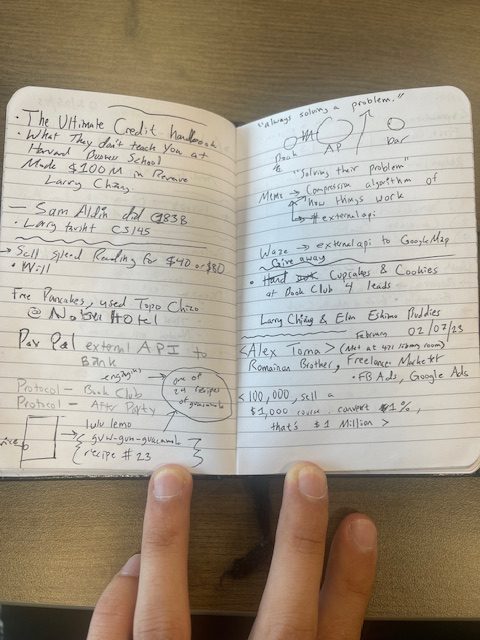 • The Ultimate Credit handbook
• What They don't teach you at
Harvard Business School
Made $100M in Revenue
Larry Chiang
— Sam Aldin did CS183B
• Larry taught CS145
→ Sell speed Reading for $40 or $80
• Will
Free Pancakes, used Topo Chizo
@ Nobu Hotel
Pay Pal external API to
Bank
engaging
one of
24 recipes
of guacamole
Protocol — Book Club
Protocol — After Party
lulu lemo
guw-gun-guacamole
recipe # 23
"always solving a problem."
Book
AP
bar
"Solving their problem"
Meme → Compression algorithm of
how things work
# external api
Waze → external api to Google Map
Give away
• Hand Cupcakes & Cookies
at Book Club 4 leads
Larry Chiang & Elon Eskimo Buddies
February 02/07/23
<Alex Toma> (Met at 471 library room)
Romainan Brother, Freelance Marketer
• FB Ads, Google Ads
<100,000, sell a
$1,000 course convert 1%,
that's $1 Million>